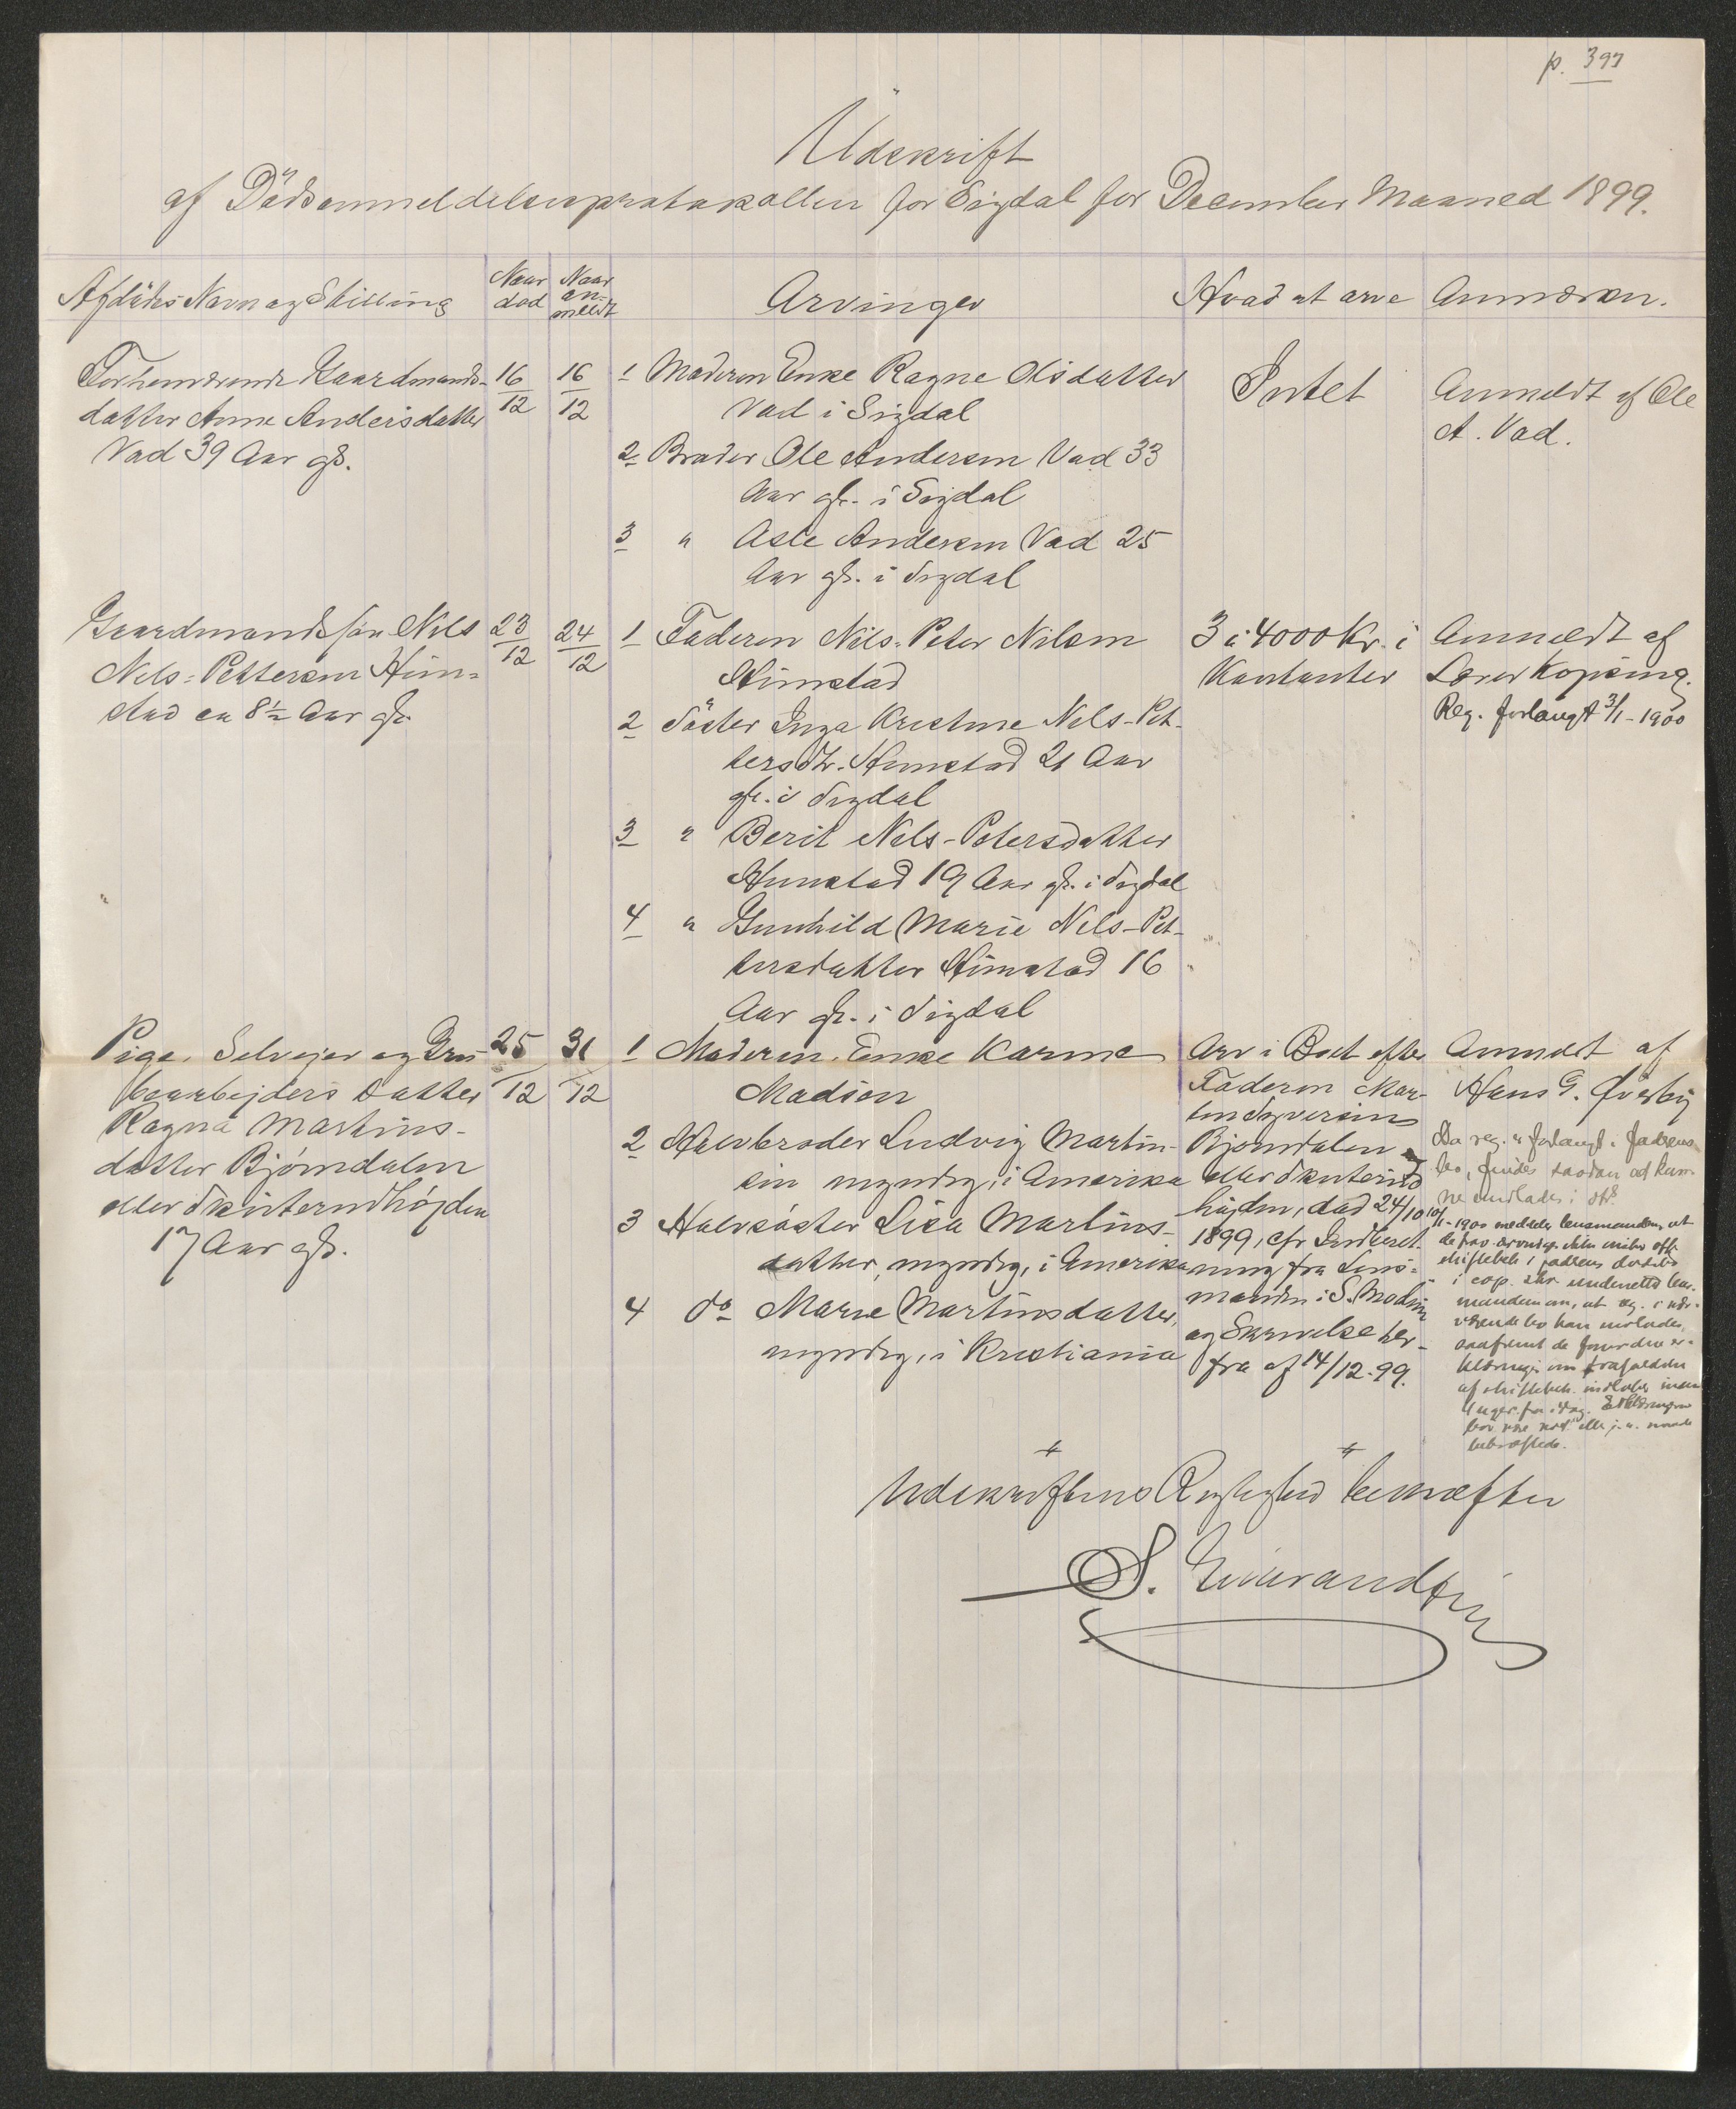 p. 397
Udskrift
af Dödsanmeldelsesprotokollen for Sigdal for December Maaned 1899.
Afdödes Navn og Stilling
Naar död
Naar an-
meldt
Arvinger
Hvad at arve
Anmærkn.
Forhenværende Gaardmands-
datter Anne Andersdatter
Vad 39 Aar gl.
16/12
16/12
1 Moderen Enke Ragne Olsdatter
Vad i Sigdal
2 Broder Ole Andersen Vad 33
Aar gl. i Sigdal
3 " Asle Andersen Vad 25
Aar gl. i Sigdal
Intet
Anmeldt af Ole
A. Vad.
Gaardmandssön Nils
Nils-Pettersen Him-
stad ca 8½ Aar gl.
23/12
24/12
1 Faderen Nils-Peter Nilsen
Himstad
2 Söster Inga Kristine Nils-Pet-
tersdtr. Himstad 21 Aar
gl. i Sigdal
3 " Berit Nils-Petersdatter
Himstad 19 Aar gl. i Sigdal
4 " Gunhild Marie Nils-Pet-
tersdatter Himstad 16
Aar gl. i Sigdal
3 à 4000 Kr. i
Kontanter
Anmeldt af
Lærer Kopseng.
Reg. forlangt 3/1-1900
Pige, Selveier og Gru-
bearbejders Datter
Ragna Martins-
datter Bjørndalen
eller Skuterudhöjden
17 Aar gl.
25/12
31/12
1 Moderen, Enke Karine
Madsen
2 Halvbroder Ludvig Martin-
sen myndig, i Amerika
3 Halvsöster Lisa Martins-
datter, myndig, i Amerika
4 do Marie Martinsdatter,
myndig, i Kristiania
Arv i Boet efter
Faderen Mar-
tin Syversen
Bjørndalen
eller Skuterud
höjden, död 24/10
1899, cfr Indberet-
ning fra Lens-
manden i S. Modum
og Skrivelse her-
fra af 14/12-99.
Anmeldt af
Hans G. Øverby
Da reg. er forlangt i faderens
bo, findes saadan at kun-
ne undlades i dtte
10/1-1900 meddeler lensmanden, at
skiftebeh. i faderens dødsbo
i cap. underrettet lens-
manden om, at reg. i nær-
værende bo kan undlades,
saafremt de
om frafaldelse
af skiftebeh. indløber inden
uger fra idag. Erklæringen
bekræftede.
Udskriftens Rigtighed bekræfter
S. Eivindsen